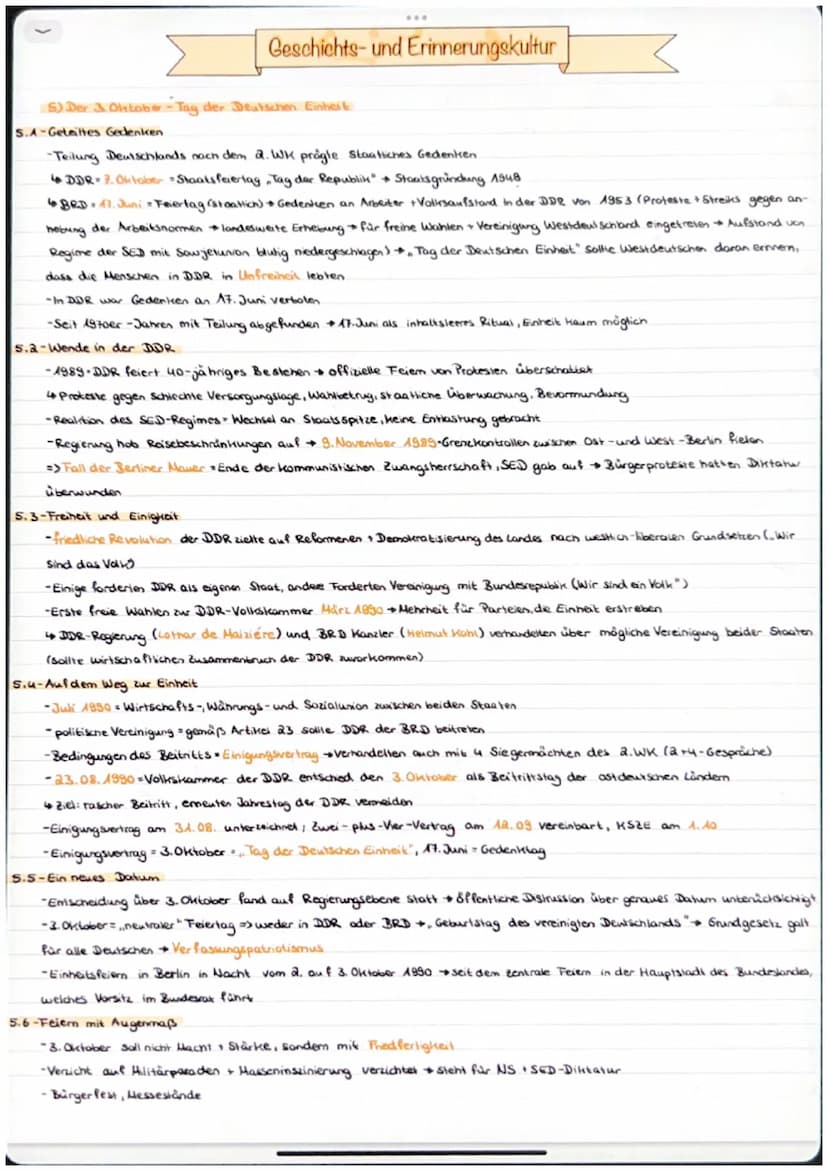 Geschichts- und Erinnerungskultur
5) Der 3. Oktober - Tag der Deutschen Einheit
5.1 - Geteiltes Gedenken
- Teilung Deutschlands nach dem 2. WK prägte staatliches Gedenken
↳ DDR = 7. Oktober = Staatsfeiertag „Tag der Republik" → Staatsgründung 1948
↳ BRD = 17. Juni = Feiertag (staatlich) → Gedenken an Arbeiter + Volksaufstand in der DDR von 1953 (Proteste + Streiks gegen an-
hebung der Arbeitsnormen → landesweite Erhebung → für freihe Wahlen + Vereinigung Westdeutschland eingetreten → Aufstand von
Regime der SED mit Sowjetunion blutig niedergeschlagen) → „Tag der Deutschen Einheit" sollte Westdeutschen daran erinnern,
dass die Menschen in DDR in Unfreiheit lebten
- In DDR war Gedenken an 17. Juni verboten
- Seit 1970er-Jahren mit Teilung abgefunden → 17. Juni als inhaltsleeres Ritual, Einheit kaum möglich
5.2 - Wende in der DDR
- 1989 = DDR feiert 40-jähriges Bestehen → offizielle Feiern von Protesten überschattet
↳ Proteste gegen schlechte Versorgungslage, Wahlbetrug, staatliche Überwachung, Bevormundung
- Reaktion des SED-Regimes = Wechsel an Staatsspitze, keine Entlastung gebracht
- Regierung hob Reisebeschränkungen auf → 9. November 1989 = Grenzkontrollen zwischen Ost- und West-Berlin fielen
=> Fall der Berliner Mauer = Ende der kommunistischen Zwangsherrschaft, SED gab auf → Bürgerproteste hatten Diktatur
überwunden
5.3 - Freiheit und Einigkeit
- friedliche Revolution der DDR zielte auf Reformenen + Demokratisierung des Landes nach westlich-liberalen Grundsetzen („Wir
sind das Volk")
- Einige forderten DDR als eigenen Staat, andere Forderten Vereinigung mit Bundesrepublik (Wir sind ein Volk")
- Erste freie Wahlen zur DDR-Volkskammer März 1990 → Mehrheit für Parteien, die Einheit erstreben
↳ DDR-Regierung (Lothar de Maiziére) und BRD Kanzler (Helmut Kohl) verhandelten über mögliche Vereinigung beider Staaten
(sollte wirtschaftlichen Zusammenbruch der DDR zuvorkommen)
5.4 - Auf dem Weg zur Einheit
- Juli 1990 = Wirtschafts-, Währungs- und Sozialunion zwischen beiden Staaten
- politische Vereinigung = gemäß Artikel 23 sollte DDR der BRD beitreten
- Bedingungen des Beitritts = Einigungsvertrag → verhandelten auch mit 4 Siegermächten des 2. WK (2+4-Gespräche)
- 23.08.1990 = Volkskammer der DDR entschied den 3. Oktober als Beitrittstag der ostdeutschen Ländern
↳ Ziel: rascher Beitritt, erneuten Jahrestag der DDR vermeiden
- Einigungsvertrag am 31.08. unterzeichnet; Zwei-plus-Vier-Vertrag am 12.09 vereinbart, KSZE am 1.10
- Einigungsvertrag = 3. Oktober = „Tag der Deutschen Einheit", 17. Juni = Gedenktag
5.5 - Ein neues Datum
- Entscheidung über 3. Oktober fand auf Regierungsebene statt → öffentliche Diskussion über genaues Datum unberücksichtigt
- 3. Oktober = „neutraler" Feiertag => weder in DDR oder BRD →„Geburtstag des vereinigten Deutschlands" → Grundgesetz galt
für alle Deutschen → Verfassungspatriotismus
- Einheitsfeiern in Berlin in Nacht vom 2. auf 3. Oktober 1990 → seit dem zentrale Feiern in der Hauptstadt des Bundeslandes,
welches Vorsitz im Bundesrat führt
5.6 - Feiern mit Augenmaß
- 3. Oktober soll nicht Macht + Stärke, sondern mit Friedfertigkeit
- Verzicht auf Militärparaden + Masseninszinierung verzichtet → steht für NS + SED-Diktatur
- Bürgerfest, Messestände